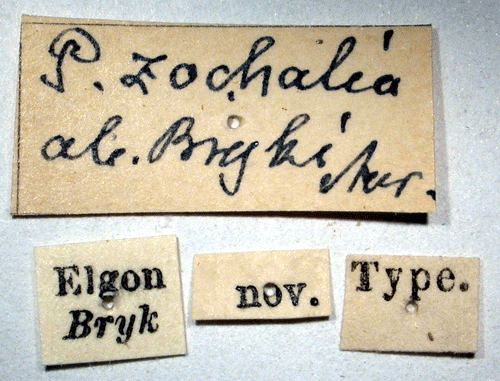 P. zochalia
ab. Bryki Aur.
Elgon
Bryk
nov.
Type.